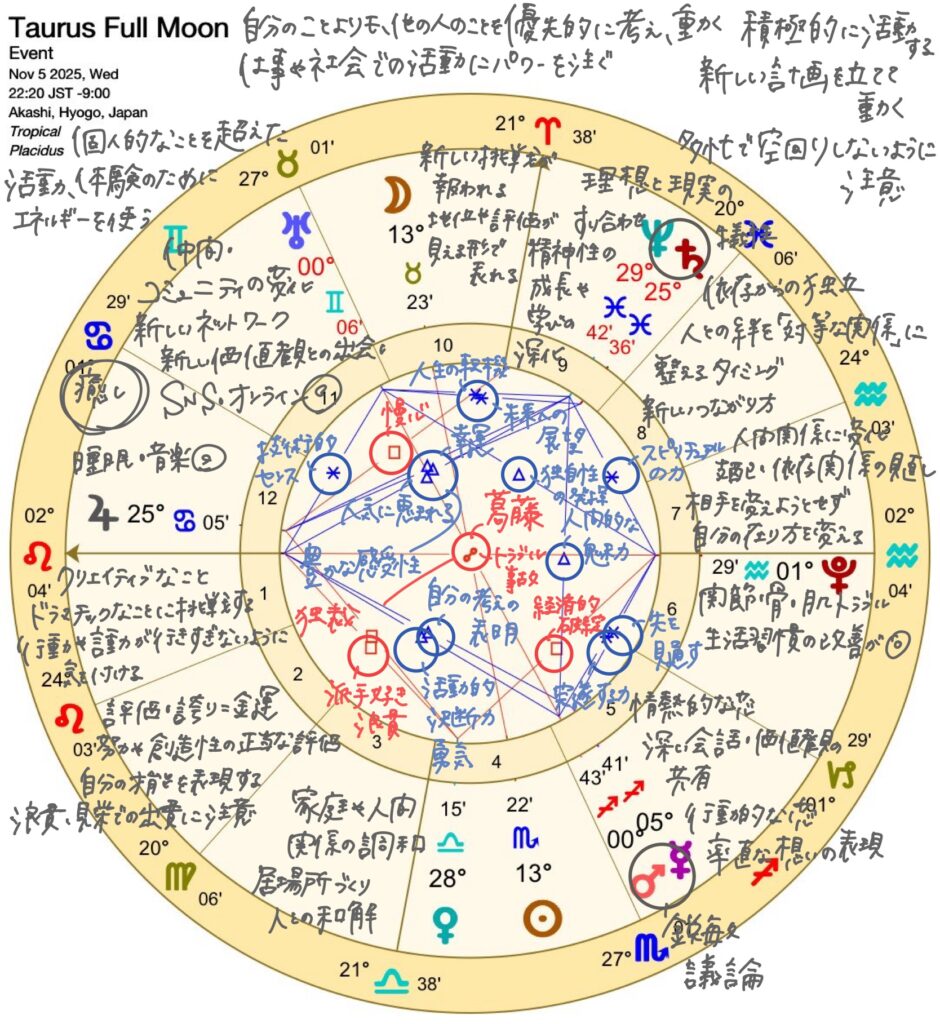 Taurus Full Moon
Event
Nov 5 2025, Wed
22:20 JST -9:00
Akashi, Hyogo, Japan
Tropical
Placidus
自分のことよりも、他の人のことを優先的に考え、動く
仕事や社会での活動にパワーを注ぐ
積極的に活動する
新しい計画を立てて
動く
多忙で空回りしないように
注意
個人的なことを超えた
活動、体験のために
エネルギーを使う
仲間・
コミュニティの変化
新しいネットワーク
新しい価値観との出会い
SNS・オンライン◎
癒し
睡眠・音楽◎
新しい挑戦が
報われる
地位や評価が
見える形で
表れる
理想と現実の
すり合わせ
精神性の
成長や
学びの
深化
依存からの独立
人との絆を「対等な関係」に
整えるタイミング
新しいつながり方
人間関係に変化
支配・依存関係の見直し
相手を変えようとせず
自分の在り方を変える
関節・骨・肌トラブル
生活習慣の改善が◎
情熱的な恋
深い会話・価値観の
共有
行動的な恋
率直な想いの表現
鋭敏
議論
家庭や人間
関係の調和
居場所づくり
人との和解
評価・誇り=金運
努力や創造性の正当な評価
自分の才能を表現する
浪費、見栄での出費に注意
クリエイティブなこと
ドラマチックなことに挑戦する
行動や言動が行きすぎないように
気を付ける
人生の転機
未来への
展望
慢心
発展
人気に恵まれる
技術的
センス
独自性
の発揮
スピリチュアル
の力
人間的な
魅力
葛藤
トラブル
事故
豊かな感受性
自分の考えの
表明
独裁
派手好き
浪費
活動的
決断力
勇気
経済的
破綻
先を
見通す
実修する力
21° ♈ 38'
20° ♓ 06'
24° ♒ 03'
02° ♒ 04'
29' ♑ 01°
27° ♏ 01'
21° ♎ 38'
20° ♍ 06'
24° ♌ 03'
02° ♌ 04'
29' ♋ 01°
27° ♉ 01'
☽ 13° ♉ 23'
♅ 00° ♊ 06'
♃ 25° ♋ 05'
♆ 29° ♓ 42'
♄ 25° ♓ 36'
♇ 01° ♒ 29'
☿ 05° ♐ 41'
♂ 00° ♐ 43'
☉ 13° ♏ 22'
♀ 28° ♎ 15'
1
2
3
4
5
6
7
8
9
10
11
12